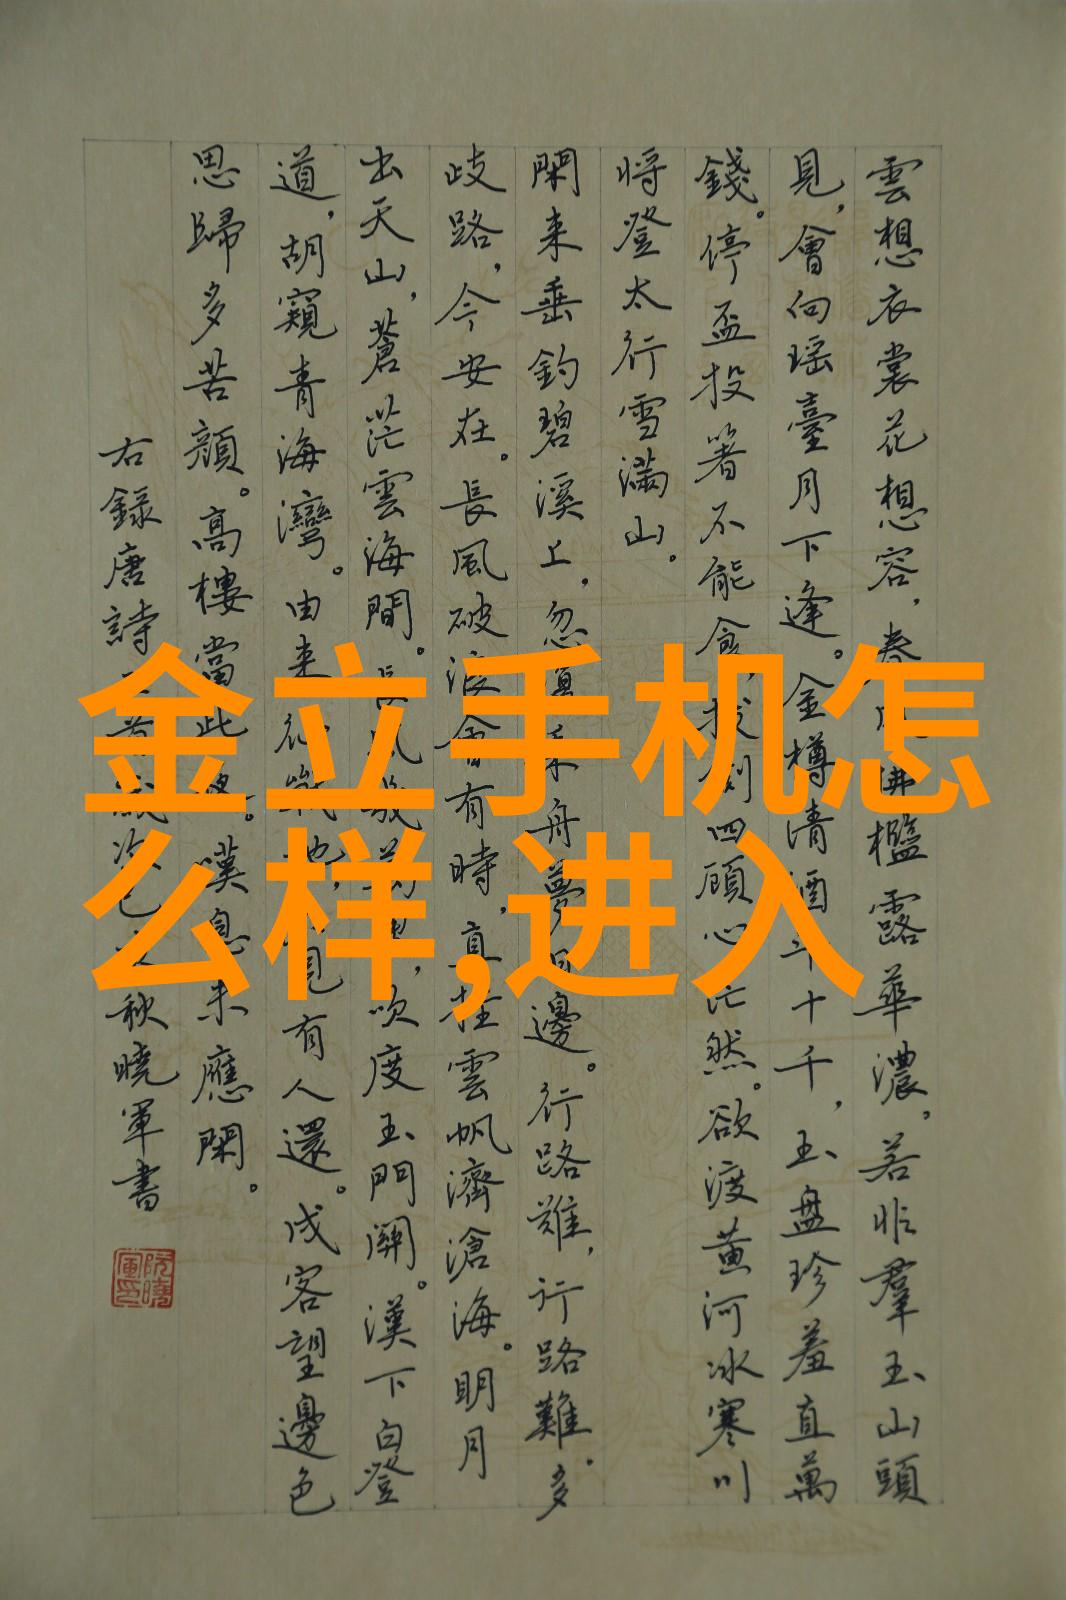 雲想衣裳花想容，春風拂檻露華濃。若非羣玉山頭
見，會向瑶臺月下逢。金樽清酒斗十千，玉盘珍羞直萬
錢。停盃投箸不能食，拔劍四顧心茫然。欲渡黄河冰寒川
将登太行雪滿山。
閑来垂釣碧溪上，忽復乘舟夢日邊。行路難，行路難。多
歧路，今安在。長風破浪會有時，直挂雲帆濟滄海。明月
出天山，蒼茫雲海間。長風幾萬里，吹度玉門關。漢下白登
道，胡窺青海灣。由来征戰地，見有人還。戍客望邊色
思歸多苦顏。高樓當此夜。嘆息未應閑。
右錄唐詩秋曉軍書
阮曉軍印
金立手机怎
么样,进入